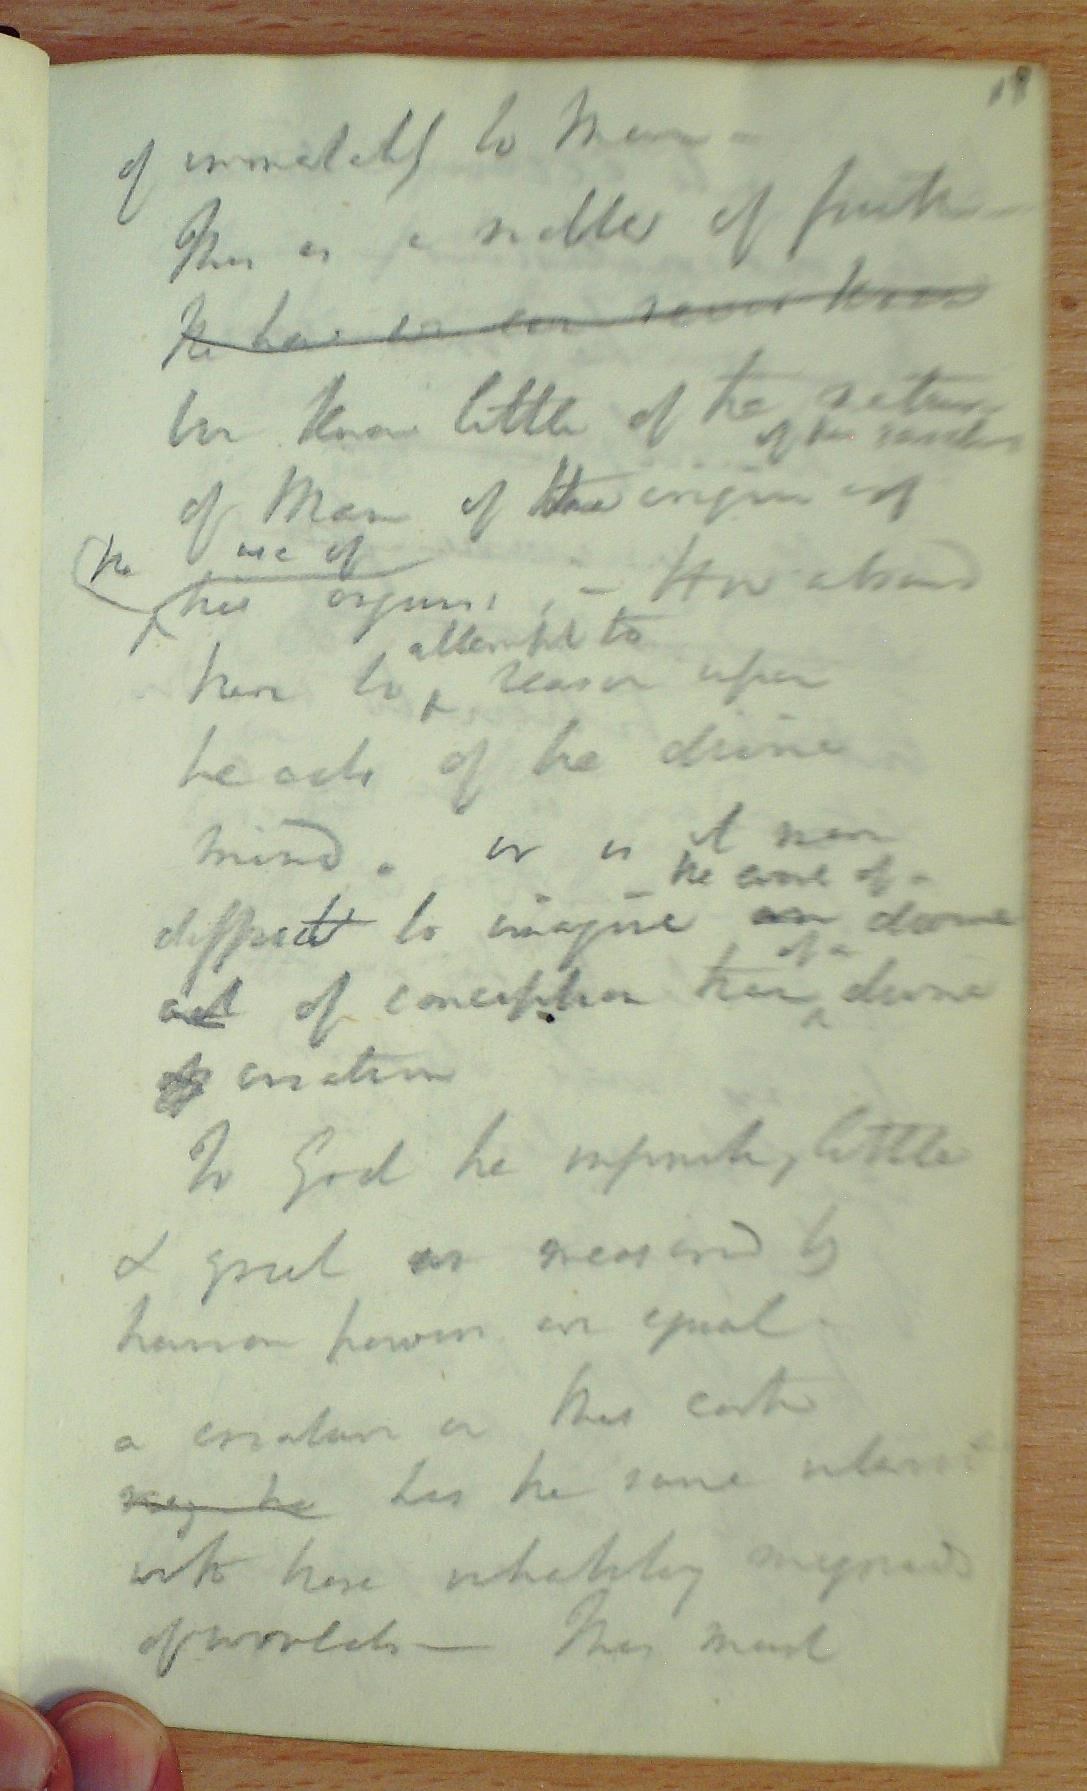 18
of immortality to Man -
This is a matter of faith -
We have or can never know
We know little of the nature
of the
of Man of the origin of
the use of
his organs, - How absurd
attempt to
then to reason upon
the acts of the divine
mind. or is it more
the work of a
difficult to imagine an divine
of a
act of conception than divine
of creation
To God the infinitely little
& great as measured by
human powers are equal -
a creature on this earth
may be has the same
with those inhabiting myriads
of worlds - This must